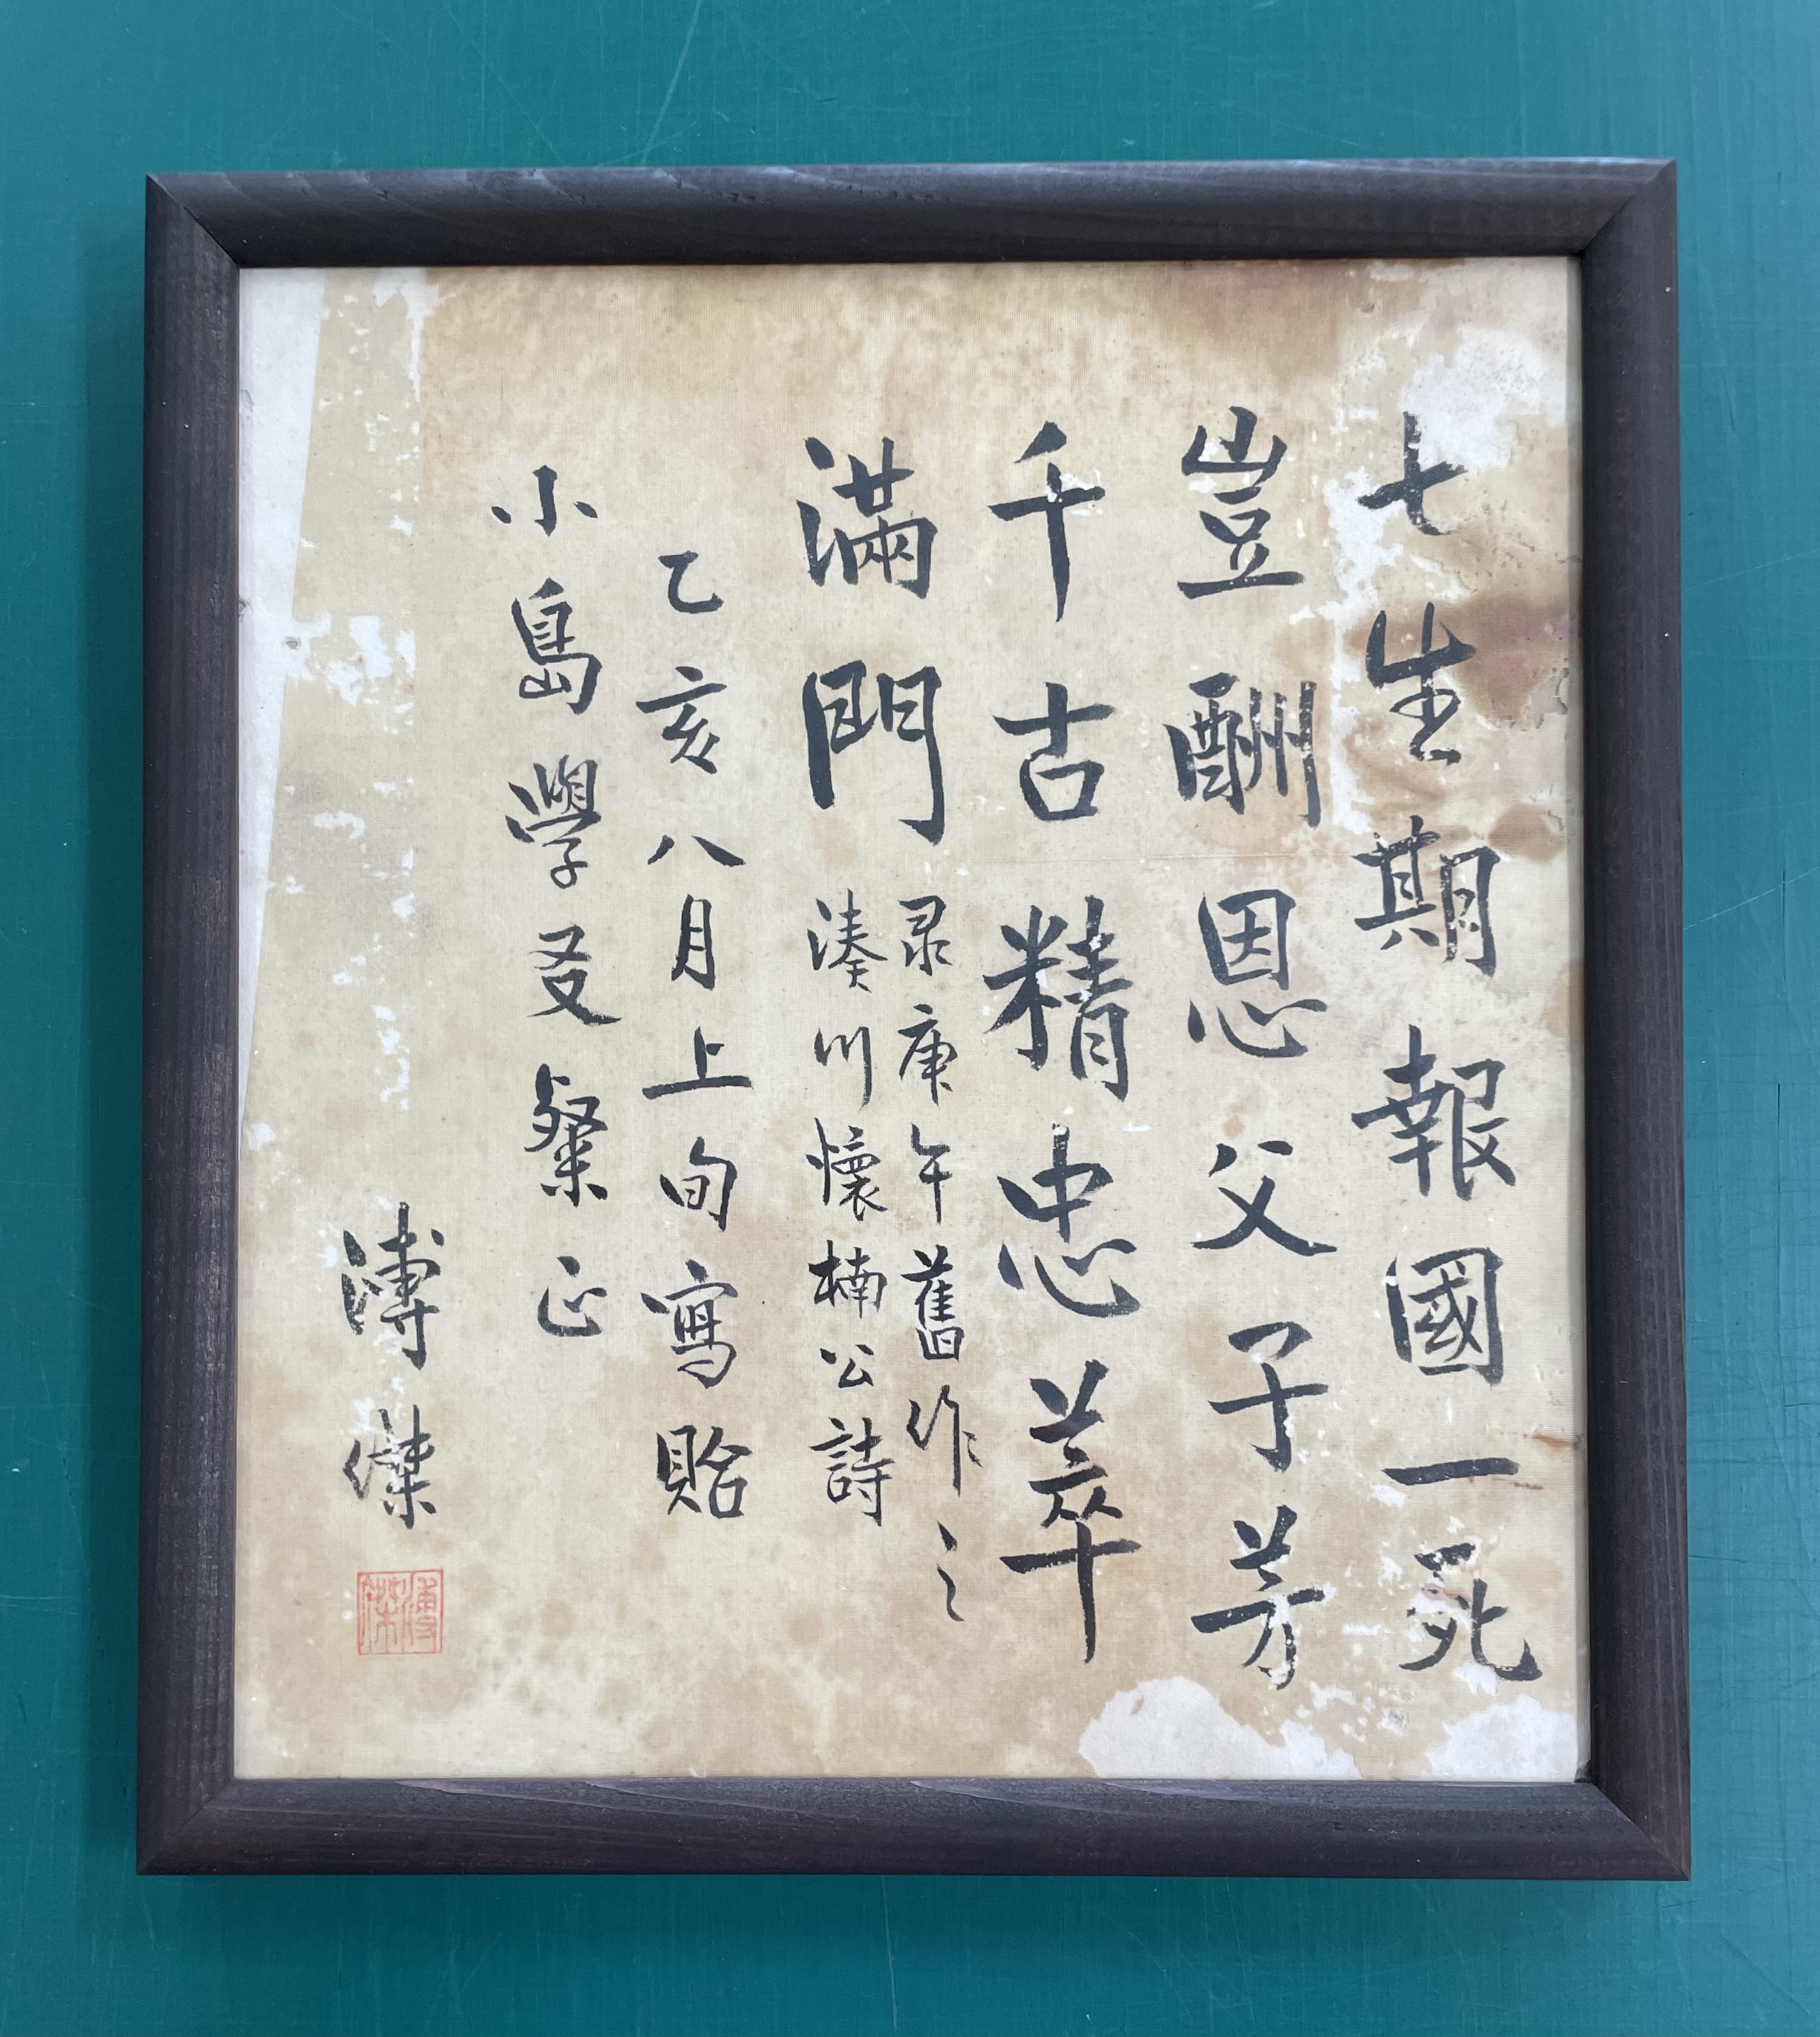 七生期報國一死
豈酬恩父子芳
千古精忠萃
滿門
录庚午舊作之一
湊川懷楠公詩
乙亥八月上旬寫貽
小島學友粲正
溥傑
溥傑